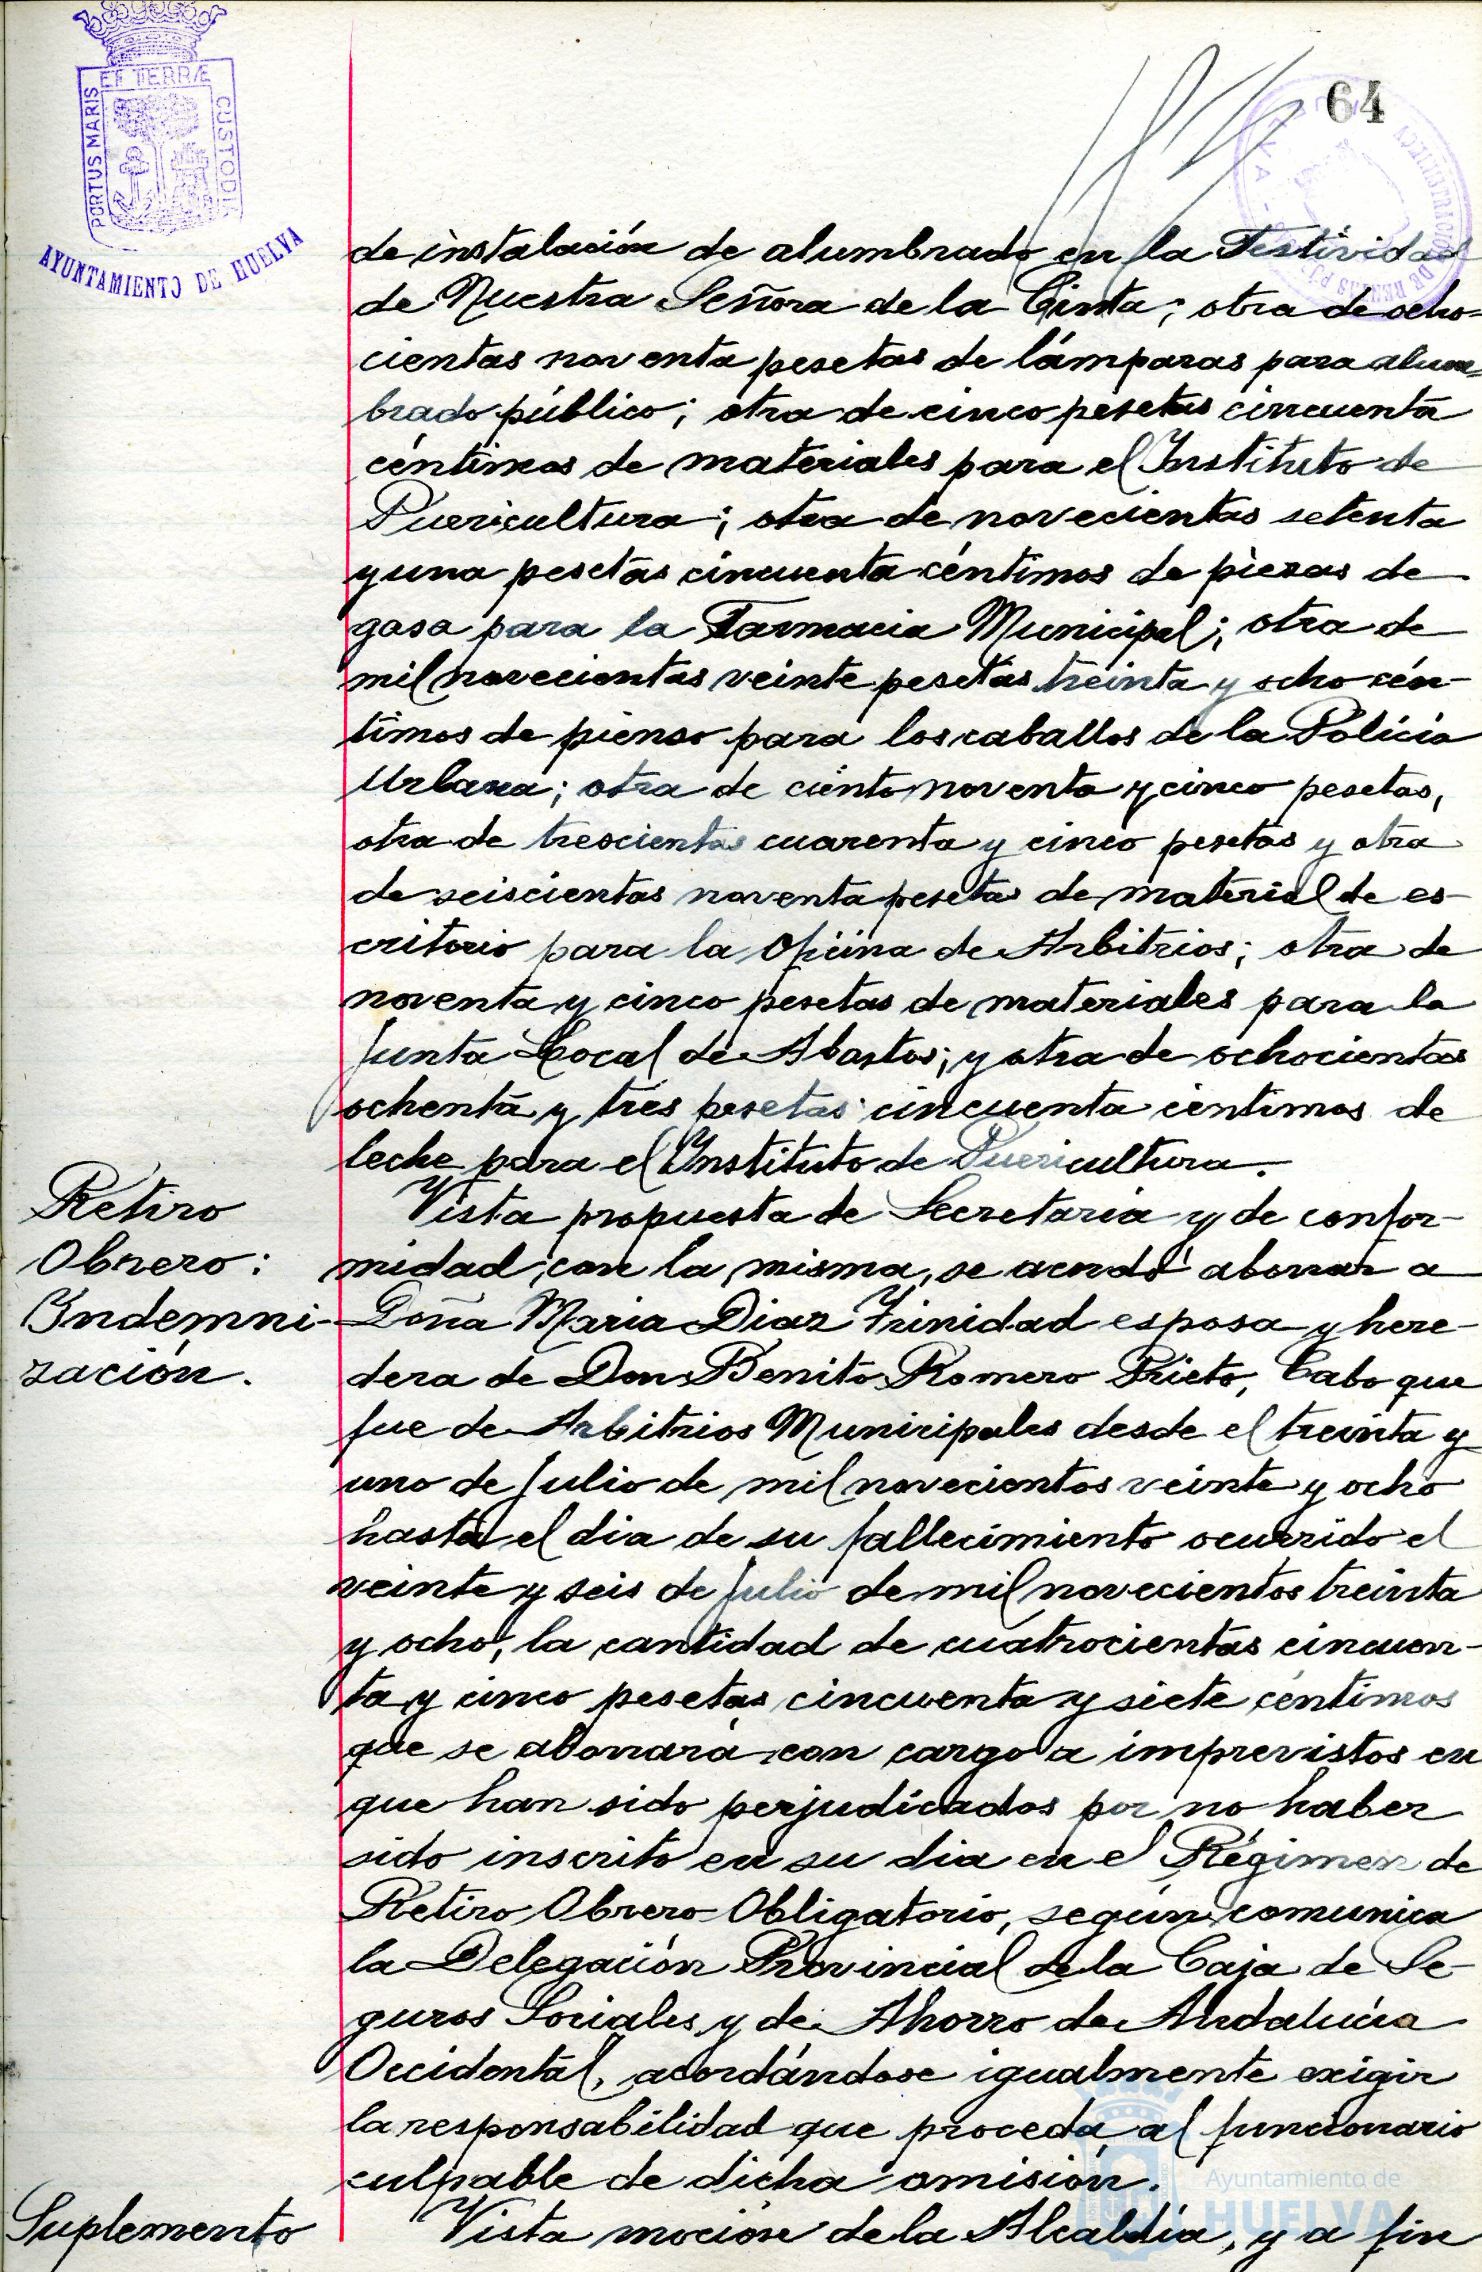 64
PORTUS MARIS ET TERRÆ CUSTODIA
AYUNTAMIENTO DE HUELVA
ADMINISTRACION DE RENTAS
de instalación de alumbrado en la Festividad
de Nuestra Señora de la Cinta; otra de ocho-
cientas noventa pesetas de lámparas para alum-
brado público; otra de cinco pesetas cincuenta
céntimos de materiales para el Instituto de
Puericultura; otra de novecientas setenta
y una pesetas cincuenta céntimos de piezas de
gasa para la Farmacia Municipal; otra de
mil novecientas veinte pesetas treinta y ocho cén-
timos de pienso para los caballos de la Policia
Urbana; otra de ciento noventa y cinco pesetas,
otra de trescientas cuarenta y cinco pesetas y otra
de seiscientas noventa pesetas de material de es-
critorio para la Oficina de Arbitrios; otra de
noventa y cinco pesetas de materiales para la
Junta Local de Abastos; y otra de ochocientas
ochenta y tres pesetas cincuenta centimos de
leche para el Instituto de Puericultura.
Retiro
Obrero:
Indemni-
zación.
Vista propuesta de Secretaria y de confor-
midad con la misma, se acordó abonar a
Doña Maria Diaz Trinidad esposa y here-
dera de Don Benito Romero Prieto, Cabo que
fue de Arbitrios Municipales desde el treinta y
uno de Julio de mil novecientos veinte y ocho
hasta el dia de su fallecimiento ocurrido el
veinte y seis de Julio de mil novecientos treinta
y ocho, la cantidad de cuatrocientas cincuen-
ta y cinco pesetas cincuenta y siete céntimos
que se abonará con cargo a imprevistos en
que han sido perjudicados por no haber
sido inscrito en su dia en el Régimen de
Retiro Obrero Obligatorio, según comunica
la Delegación Provincial de la Caja de Se-
guros Sociales y de Ahorro de Andalucia
Occidental, acordándose igualmente exigir
la responsabilidad que proceda al funcionario
culpable de dicha omisión.
Suplemento
Vista moción de la Alcaldía, y a fin
Ayuntamiento de
HUELVA